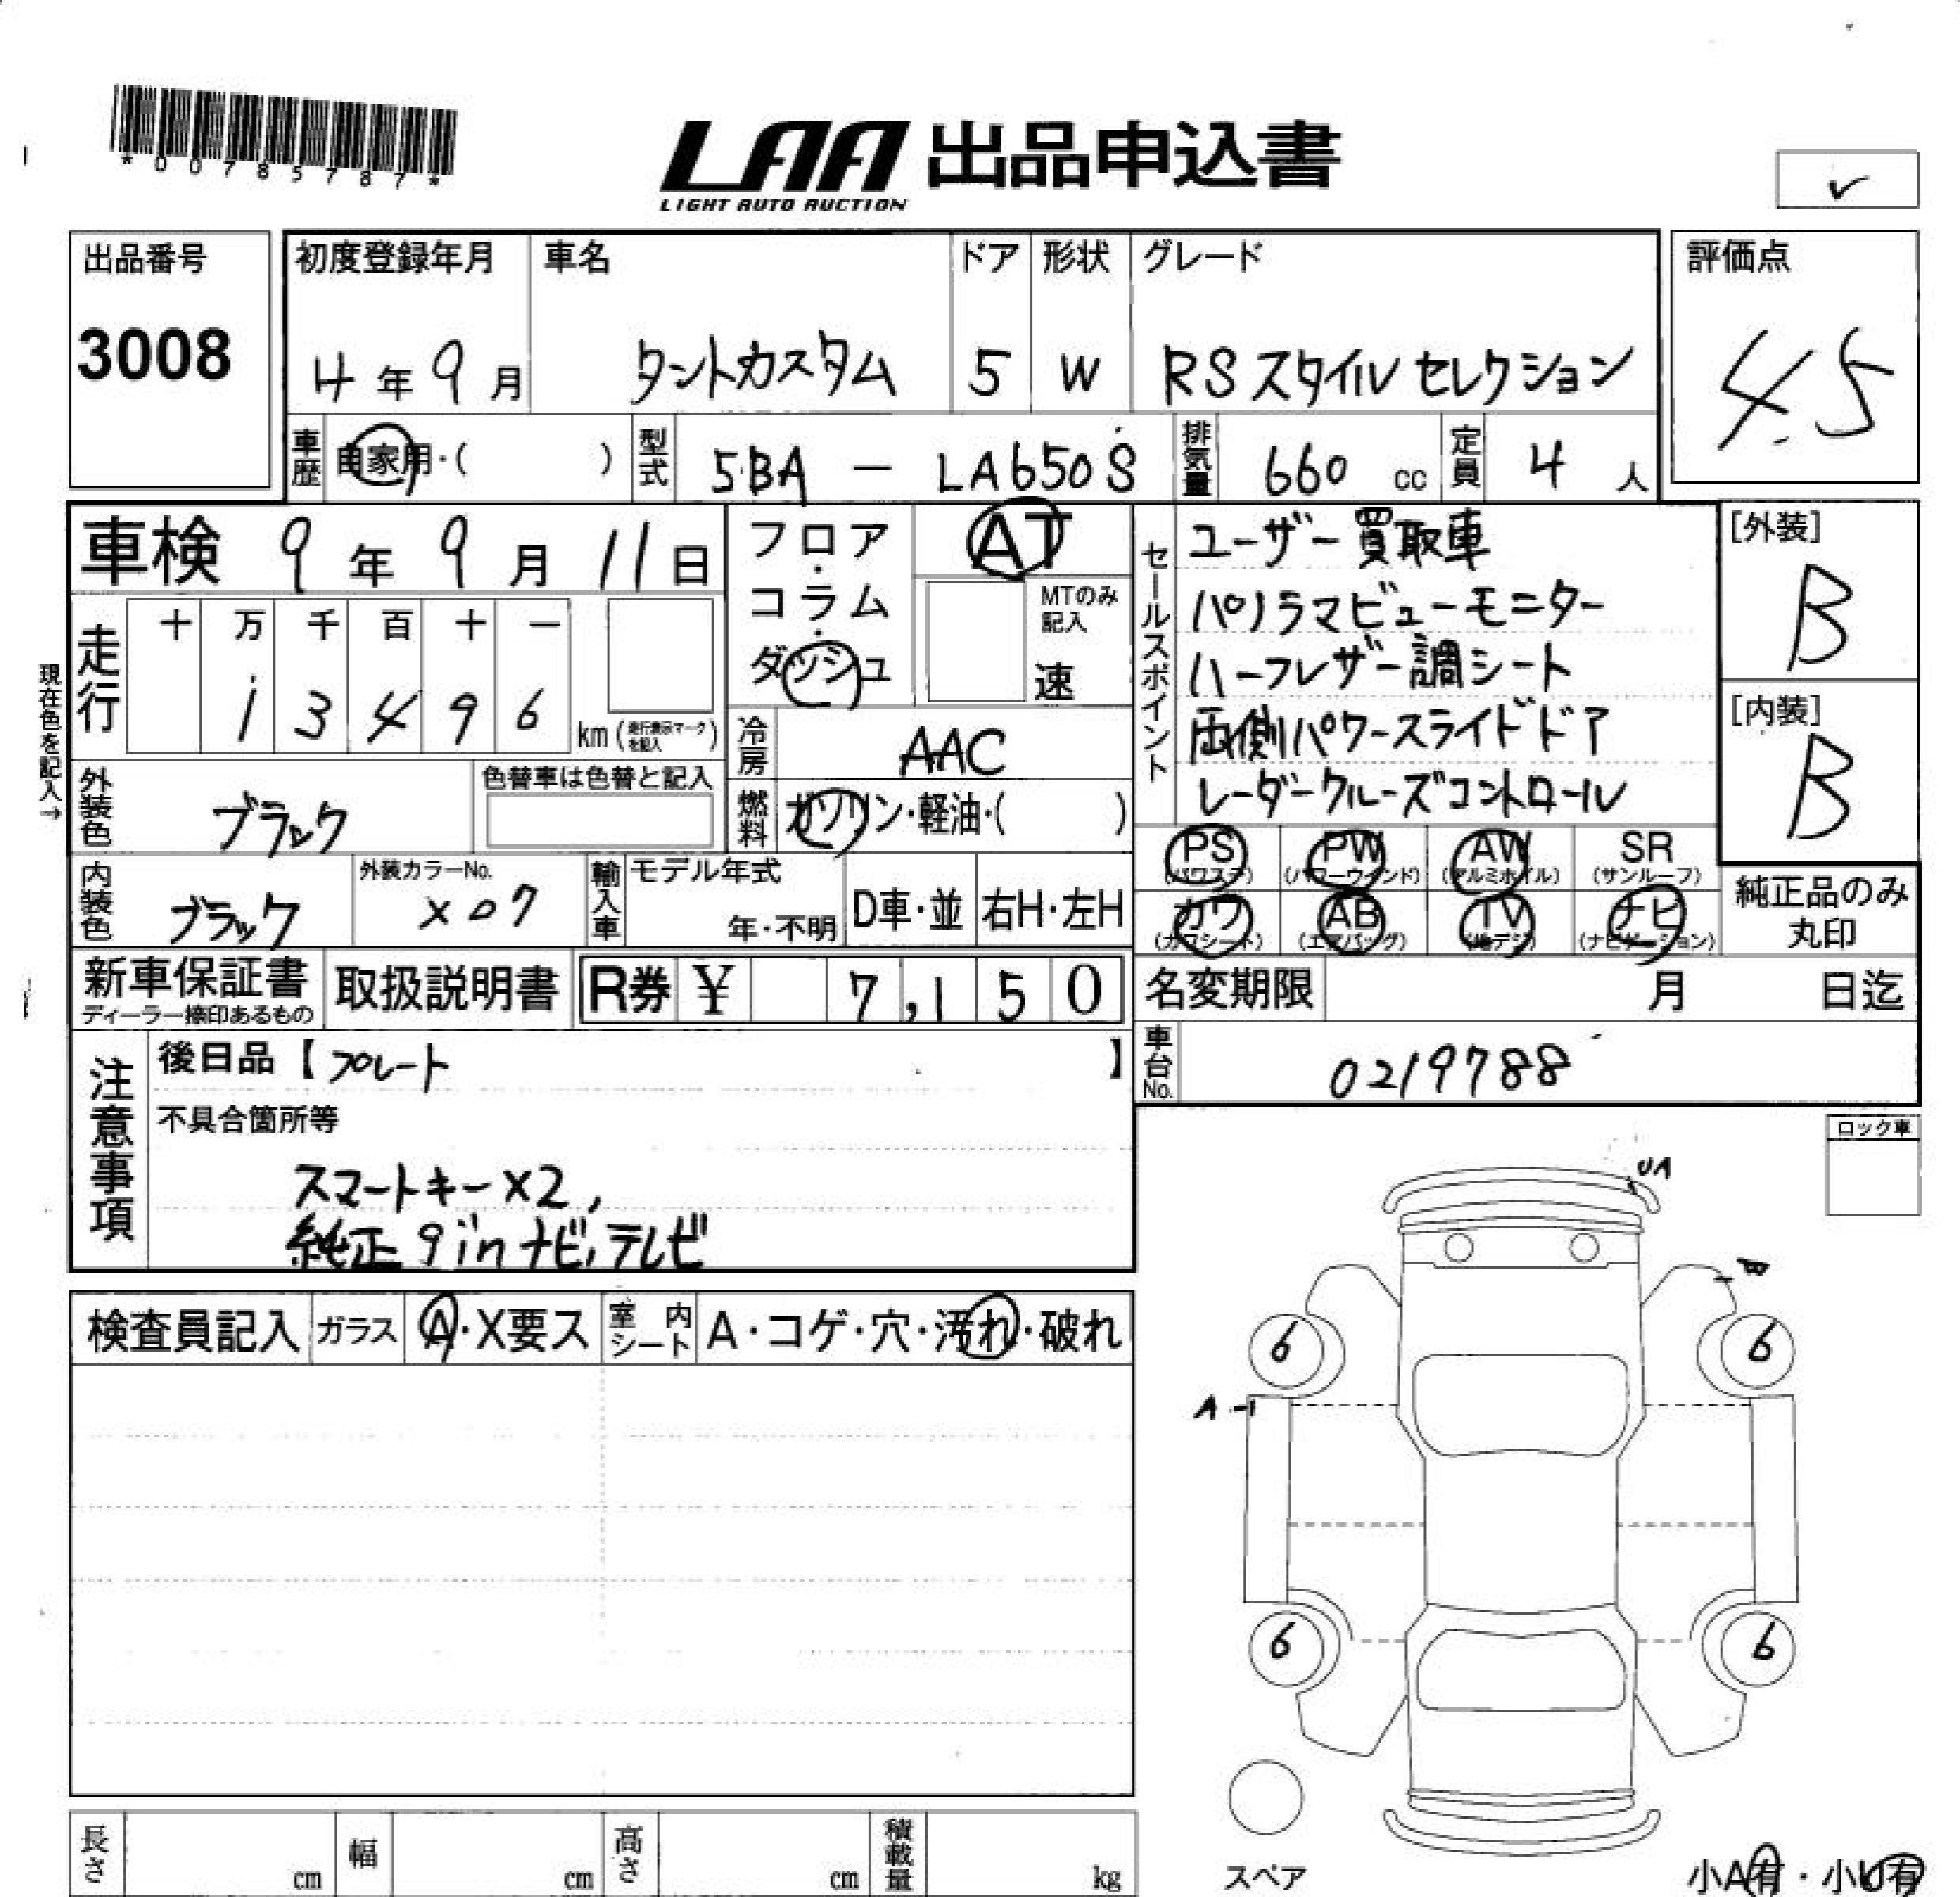 *00785787*
LAA 出品申込書
LIGHT AUTO AUCTION
✓
出品番号
3008
初度登録年月 車名 ドア 形状 グレード
4年9月 タントカスタム 5 W RSスタイルセレクション
評価点
4.5
車歴 自家用・( ) 型式 5BA — LA650S 排気量 660 cc 定員 4 人
車検 9年9月11日
フロア・コラム・ダッシュ
AT
MTのみ記入
速
セールスポイント
ユーザー買取車
パノラマビューモニター
ハーフレザー調シート
両側パワースライドドア
レーダークルーズコントロール
[外装]
B
[内装]
B
現在色を記入→
走行 十 万 千 百 十 一
1 3 4 9 6 km (走行表示マークを記入)
冷房 AAC
燃料 ガソリン・軽油・( )
外装色 ブラック 色替車は色替と記入
内装色 ブラック 外装カラーNo. X07 輸入車 モデル年式 年・不明 D車・並 右H・左H
PS (パワステ) PW (パワーウインド) AW (アルミホイル) SR (サンルーフ)
カワ (カワシート) AB (エアバッグ) TV (地デジ) ナビ (ナビゲーション)
純正品のみ丸印
新車保証書 ディーラー捺印あるもの 取扱説明書 R券 ¥ 7,150
名変期限 月 日迄
車台No. 0219788
注意事項
後日品【プレート 】
不具合箇所等
スマートキー×2,
純正9inナビ,テレビ
ロック車
検査員記入 ガラス A・X要ス 室内シート A・コゲ・穴・汚れ・破れ
UA
A
6 6
A
6 6
スペア
小A有・小U有
長さ cm 幅 cm 高さ cm 積載量 kg